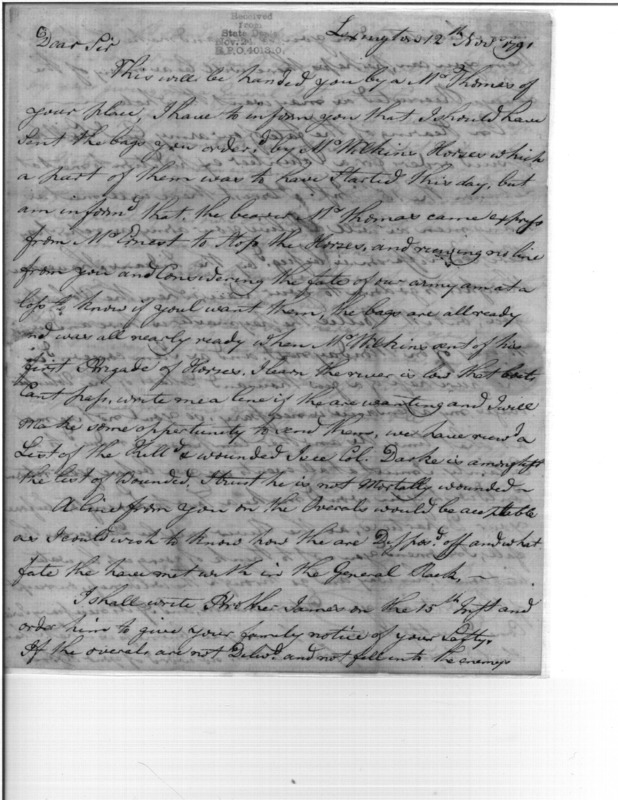 Received
from
State Dept.
Nov. 24,
E.P.O. 4013.0.
Lexington 12th Novr 1791
Dear Sir
This will be handed you by a Mr Thomas of
your place, I have to inform you that I should have
sent the bags you order'd by Mr Wilkins Horses which
a part of them was to have started this day, but
am inform'd that, the bearer Mr Thomas came express
from Mr Ernest to stop the Horses, and receiving no line
from you and Considering the fate of our army am at a
loss to know if youl want them, the bags are all ready
and was all nearly ready when Mr Wilkins sent of his
first Brigade of Horses. I learn the river is low that boats
cant pass, write me a line if the are wanting and I will
make some opportunity to send them, we have recivd a
List of the Kill'd & wounded I see Col. Darke is amongst
the list of Wounded, I trust he is not Mortally wounded ~
A line from you on the Overals would be acceptable
as I could wish to know how the are Disposd off and what
fate the have met with in the General Rack, ~
I shall write Brother James on the 15th Inst and
order him to give your family notice of your Safty.
If the overals are not Delivd and not fell into the enemys